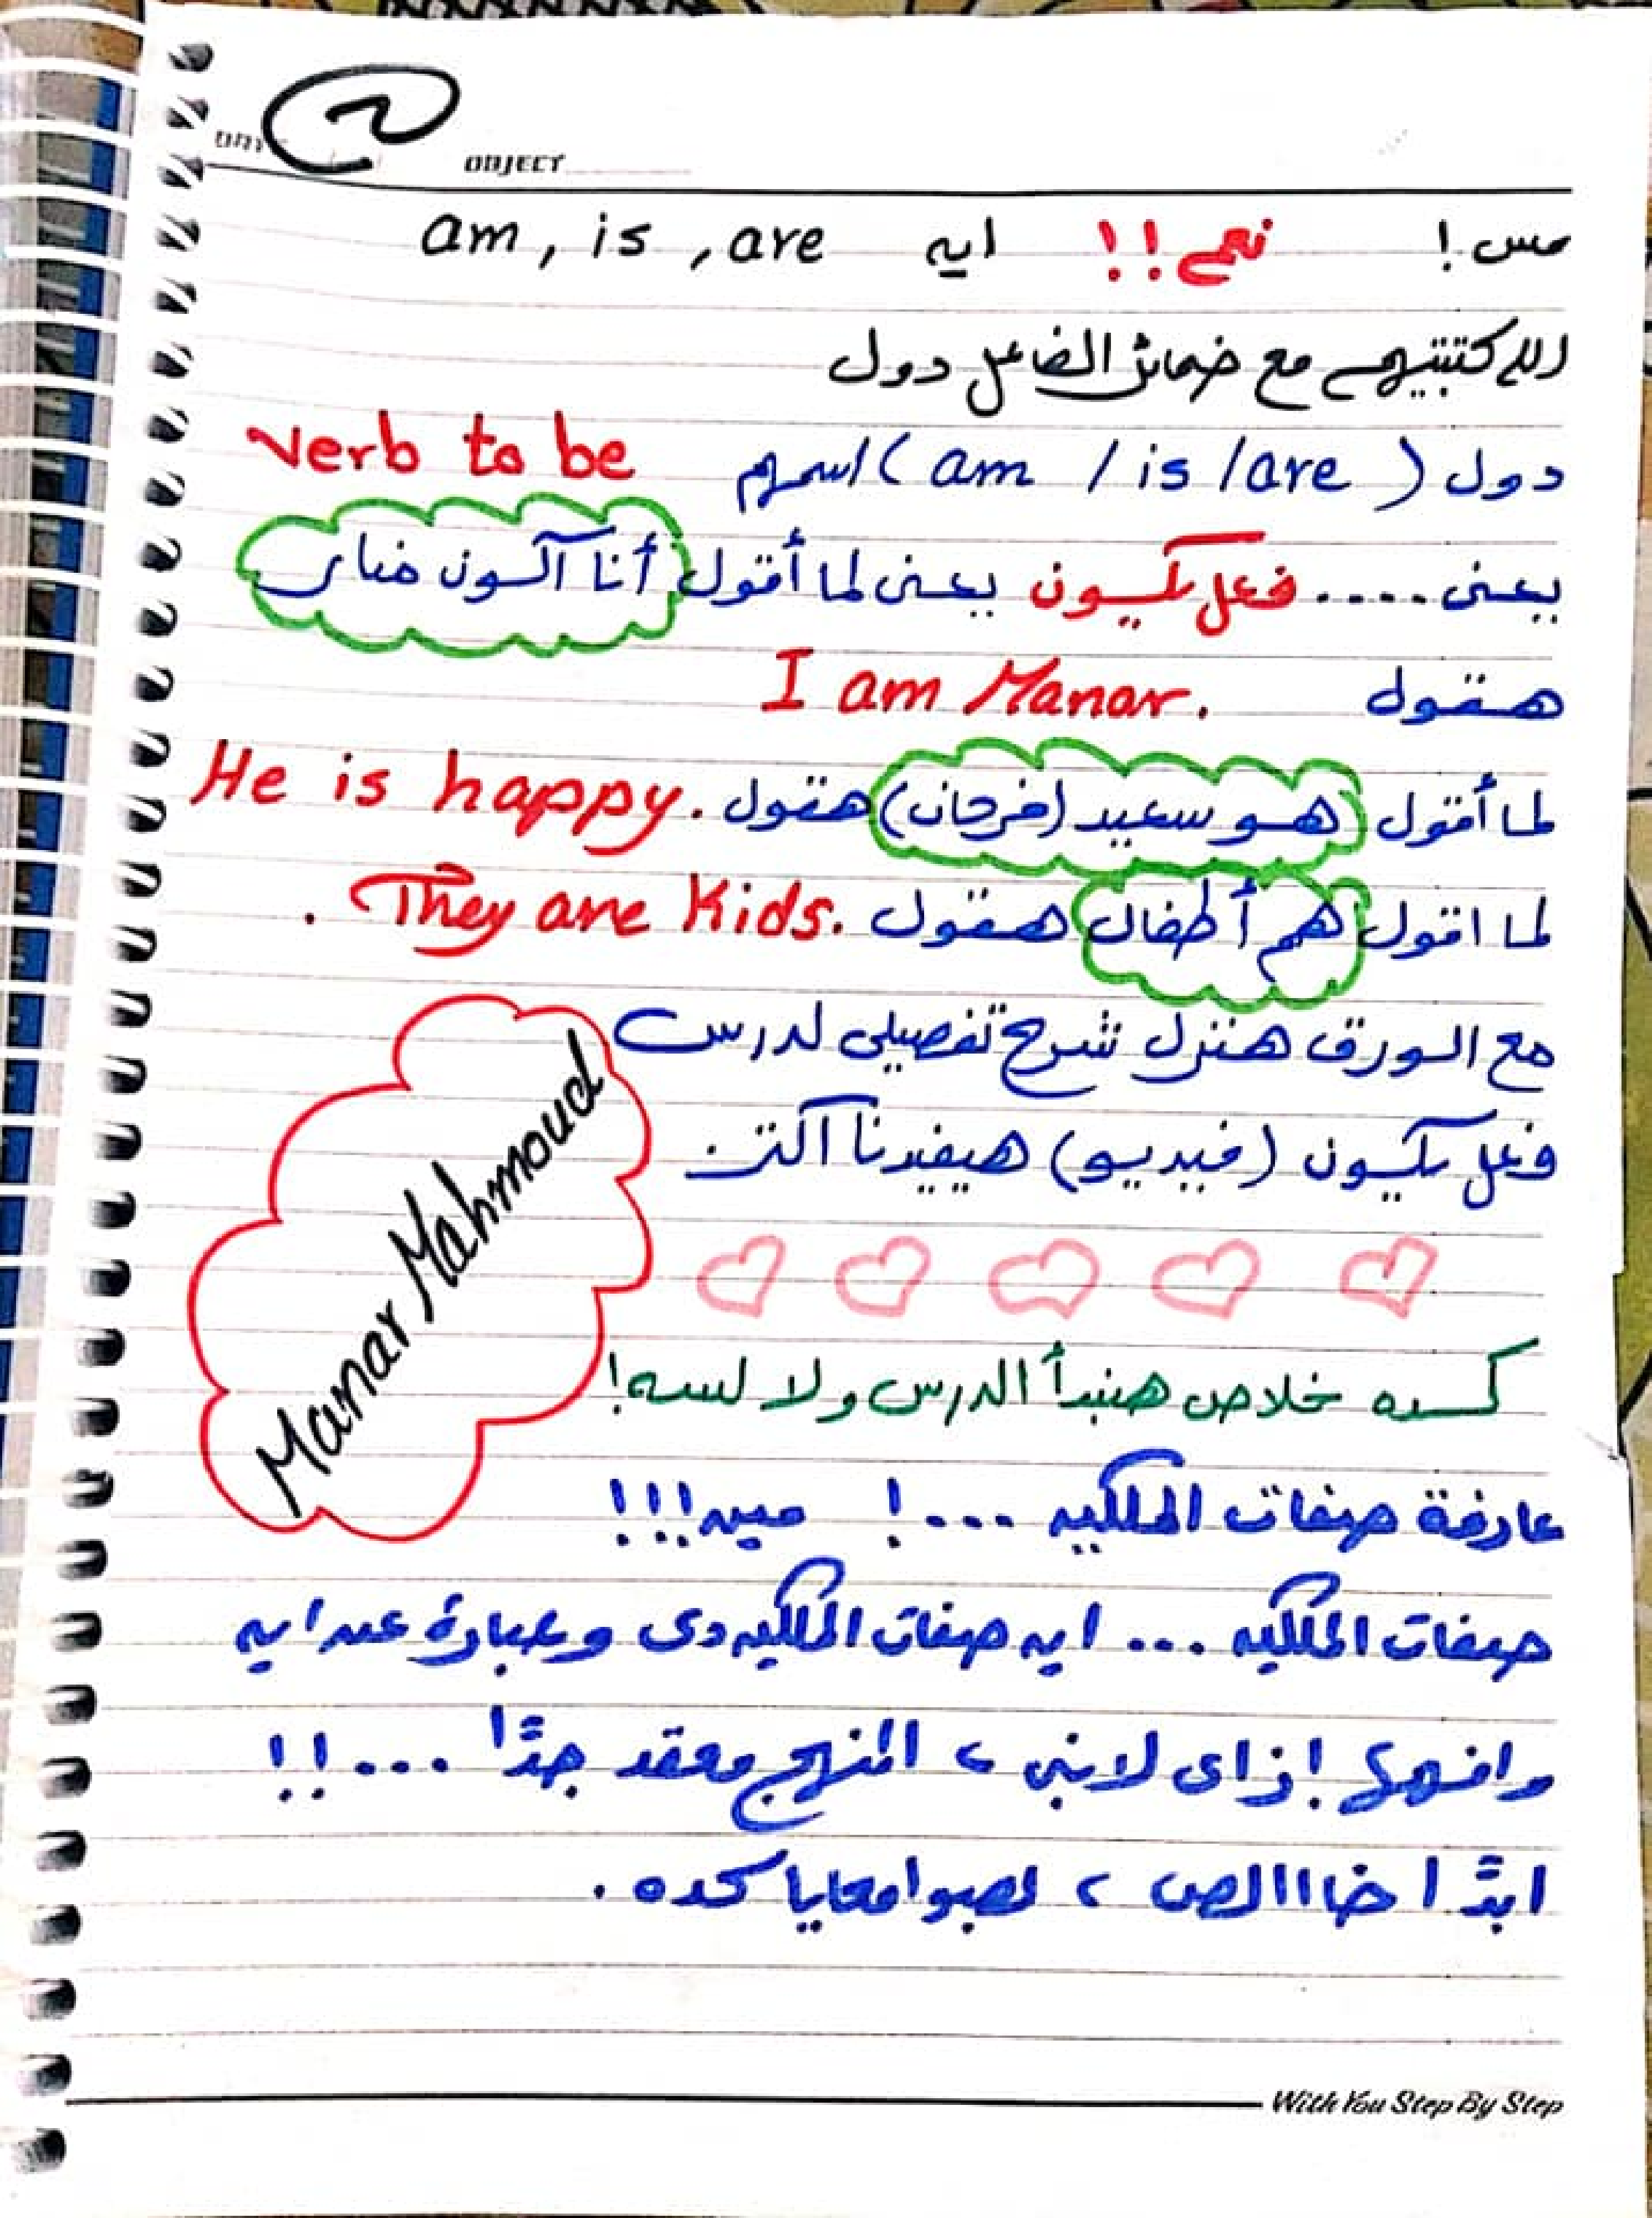 ٢
DAY
OBJECT
مس ! نعم !! ايه am , is , are
اللى كتبتيهم مع ضمائر الفاعل دول
دول ( am / is / are ) اسمهم verb to be
يعنى .... فعل يكون يعنى لما أقول أنا أكون منار
هنقول I am Manar.
لما أقول (هو سعيد (فرحان)) هنقول He is happy.
لما اقول (هم أطفال) هنقول They are Kids. .
مع الورق هننزل شرح تفصيلى لدرس
فعل يكون (فيديو) هيفيدنا أكتر
Manar Mahmoud
كده خلاص هنبدأ الدرس ولا لسه!
عارفة صفات الملكيه ...! ميه!!!
صفات الملكيه ... ايه صفات الملكيه دى وعبارة عن ايه
وافهمها إزاى لابنى ، المنهج معقد جدًّا ...!!
ابدًّا خااالص ، بصوا معايا كده .
With You Step By Step